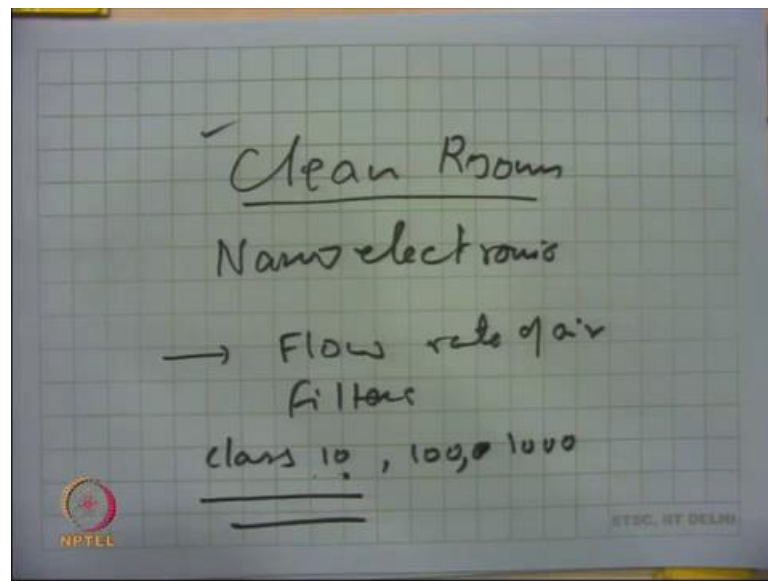 Clean Room
Nanoelectronic
→ Flow rate of air
Filters
class 10, 100, 1000
NPTEL
ETSC, IIT DELHI